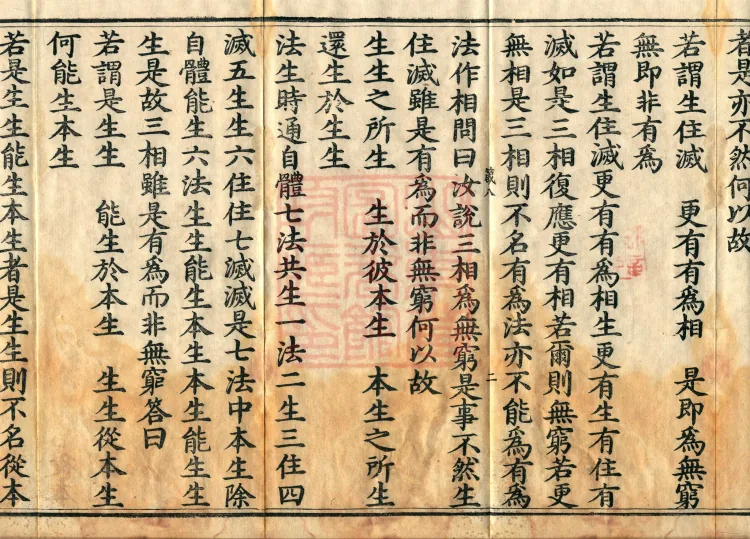 者是亦不然何以故
若謂生住滅　更有有爲相　是即爲無窮
無即非有爲
若謂生住滅更有有爲相生更有生有住有
滅如是三相復應更有相若爾則無窮若更
無相是三相則不名有爲法亦不能爲有爲
法作相問曰汝說三相爲無窮是事不然生
住滅雖是有爲而非無窮何以故
生生之所生　生於彼本生　本生之所生
還生於生生
法生時通自體七法共生一法二生三住四
滅五生生六住住七滅滅是七法中本生除
自體能生六法生生能生本生本生能生生
生是故三相雖是有爲而非無窮答曰
若謂是生生　能生於本生　生生從本生
何能生本生
若是生生能生本生者是生生則不名從本